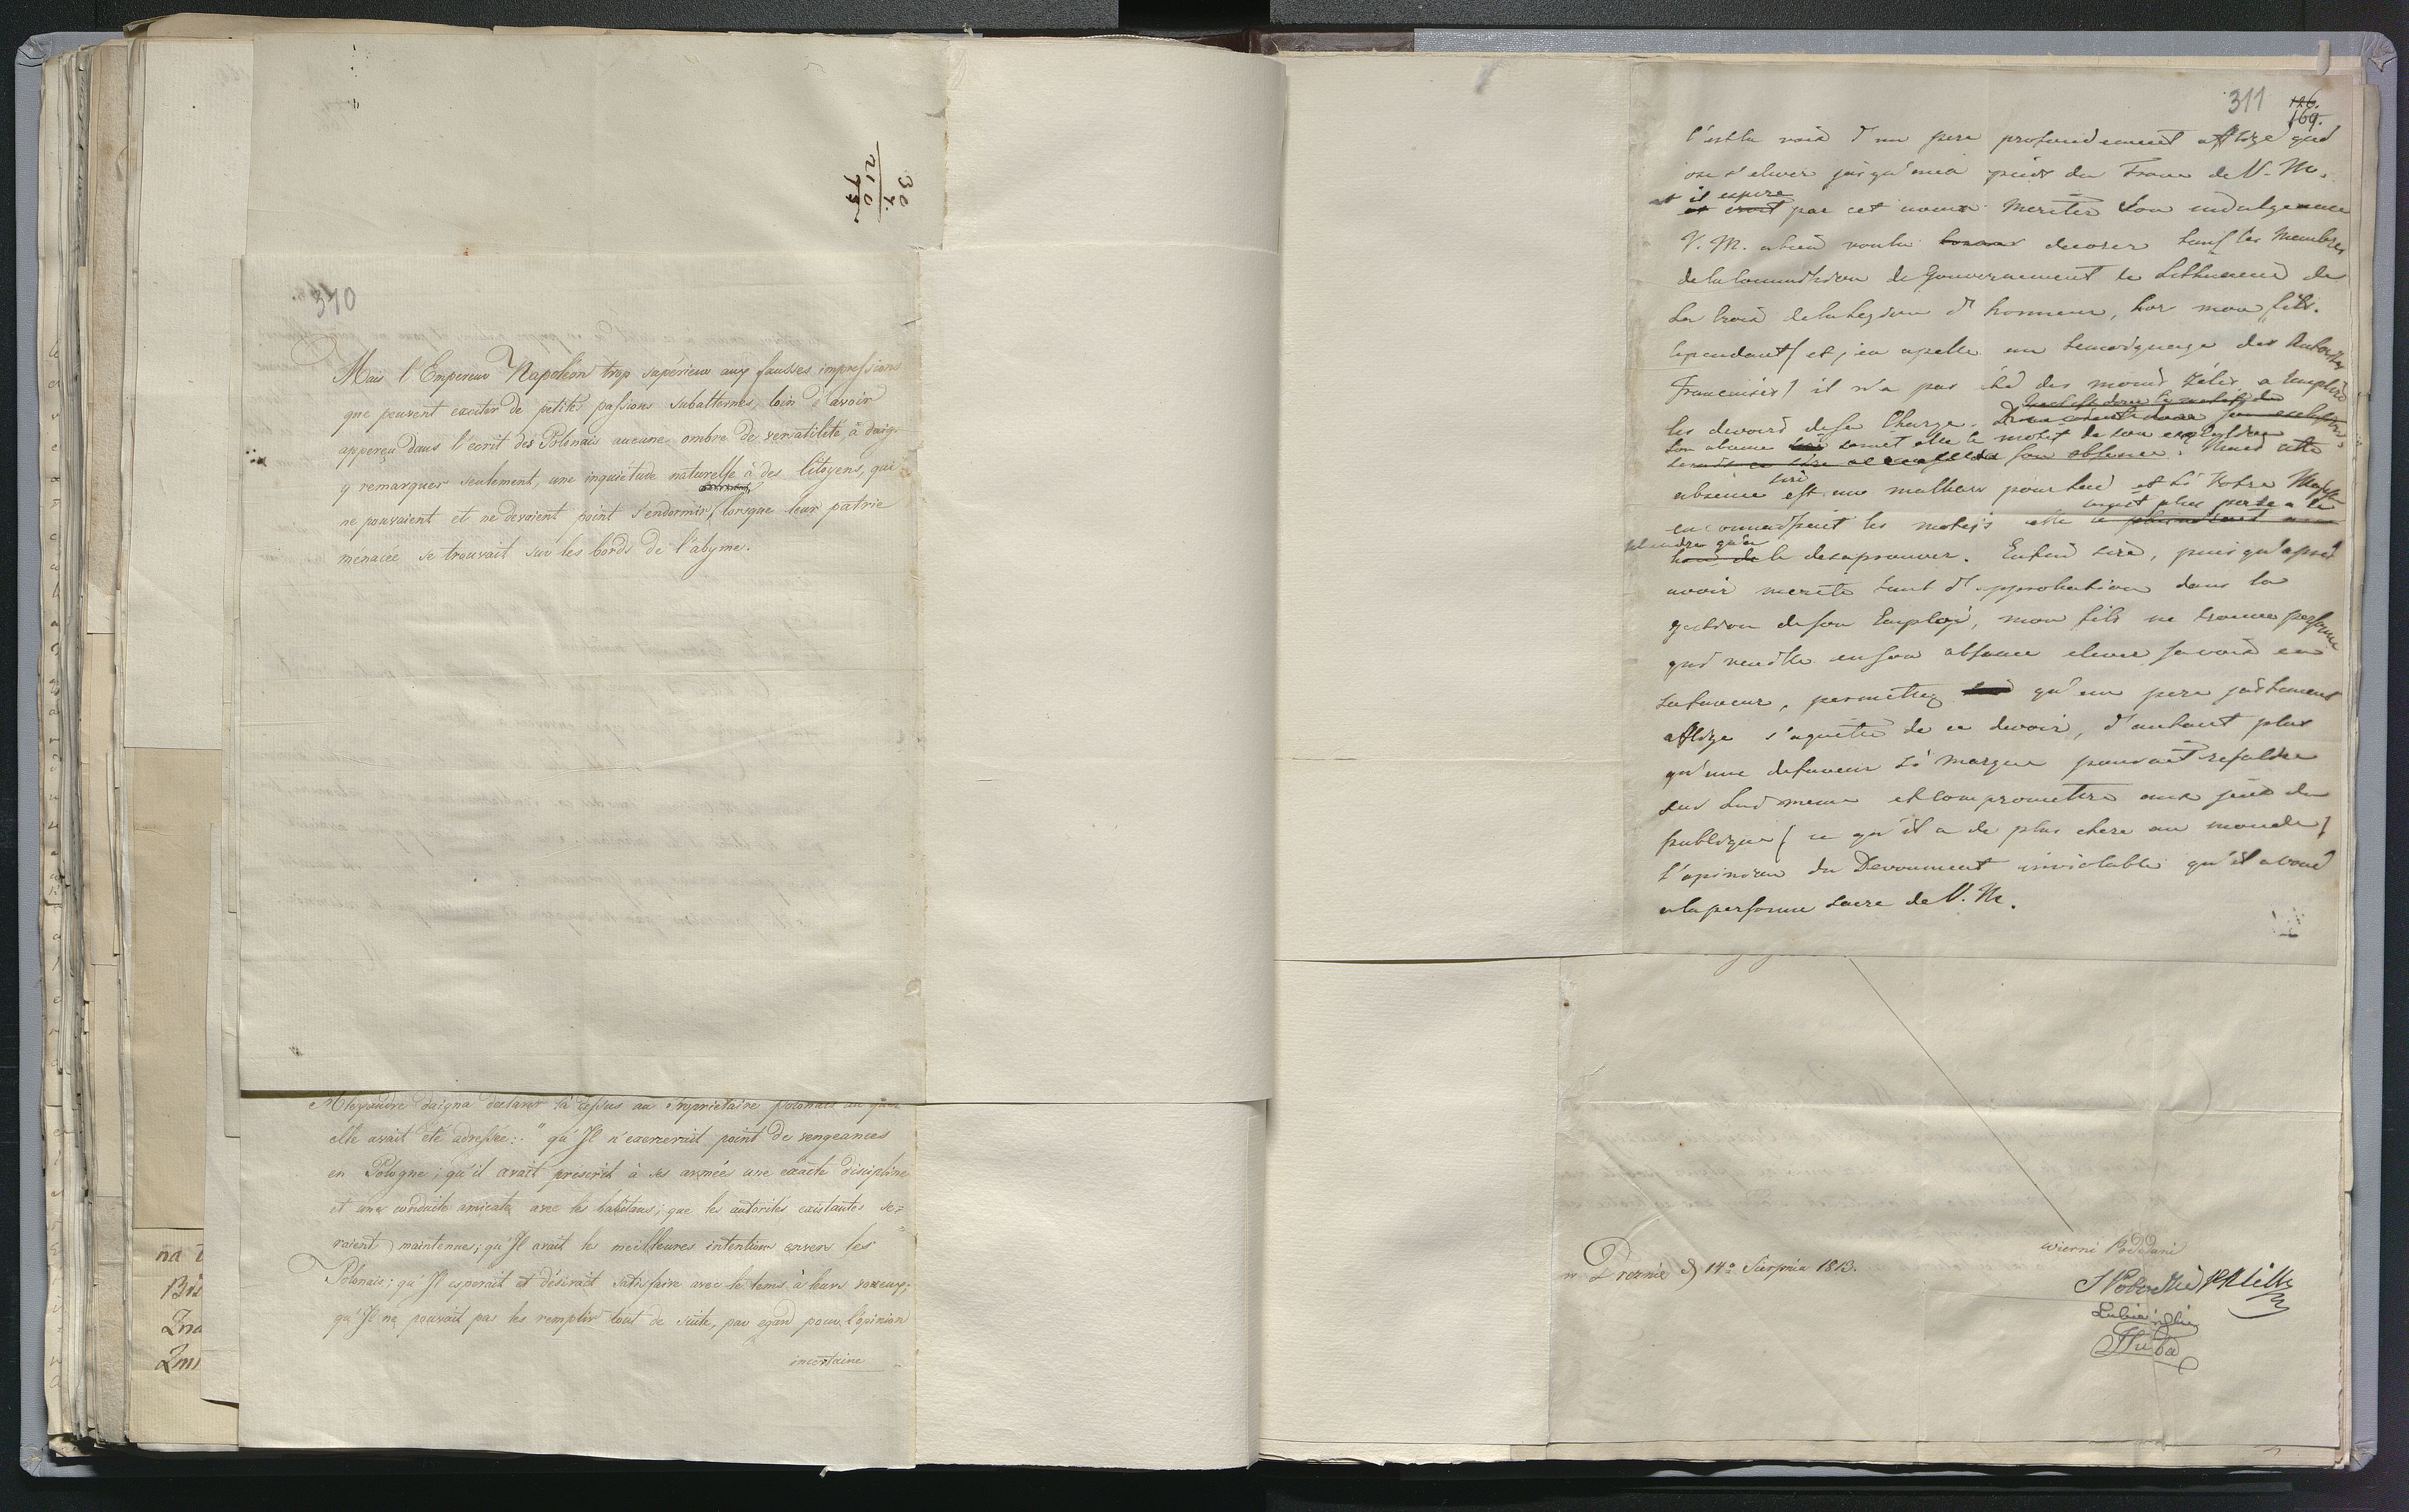 30
7.
210
73
310
Mais l'Empereur Napoléon trop supérieur aux fausses impressions
que peuvent exciter de petites passions subalternes, loin d'avoir
apperçu dans l'écrit des Polonais aucune ombre de versatilité, a daig-
y remarquer seulement, une inquiétude naturelle à des Citoyens, qui
ne pouvaient et ne devaient point s'endormir, lorsque leur patrie
menacée se trouvait sur les bords de l'abyme.
Alexandre daigna declarer là dessus au Proprietaire polonais au quel
elle avait été adressée: "qu'Il n'exercerait point de vengeances
en Pologne; qu'il avait prescrit à ses armées une exacte discipline
et une conduite amicale avec les habitans; que les autorités existantes se-
raient maintenues; qu'Il avait les meilleures intentions envers les
Polonais; qu'Il esperait et désirait satisfaire avec le tems à leurs voeux;
qu'Il ne pouvait pas les remplir tout de suite, par egard pour l'opinion
incertaine
na
Zna
311
126.
169.
C'est la voix d'un pere profondement afflige qui
ose s'elever jusqu'aux pieds du Trone de V. M.
et il espere
et croit par cet aveux meriter Son indulgence
V. M. a bien voulu decorer tous les Membres
de la Commission de Gouvernement de Lithuanie de
La Croix de la Legion d'honneur, hor mon fils.
Cependant (et j'en apelle au temoignage des Autorites
Francaises) il n'a pas été des moins zélés a remplir
les devoirs de sa Charge.
Son absence serait elle le motif de son exclusion
son absence. Mais cette
Sire
absence est un malheur pour lui et Si Votre Majeste
en connaissait les motifs elle
aurait plus porte a le
plaindre qu'a
le desaprouver. Enfin Sire, puis qu'apres
avoir merité tant d'approbation dans la
gestion de son Emploi, mon fils ne trouve personne
qui veuille en son absence elever sa voix en
sa faveur, permettez qu'un pere justement
afflige s'aquitte de ce devoir, d'autant plus
qu'une defaveur si marquée pourrait
sur Lui meme et compromettre aux jeux du
publique (ce qu'il a de plus chere au monde)
l'opinion du Devouement inviolable qu'il a voué
a la personne Sacre de V. M.
wierni Poddani
w Dreznie d 14º Sierpnia 1813.
Linba